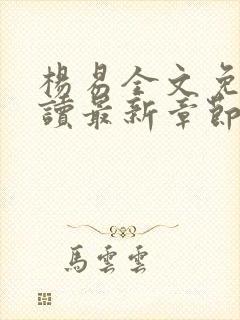 楊易全文免
讀最新章節
馬雲雲